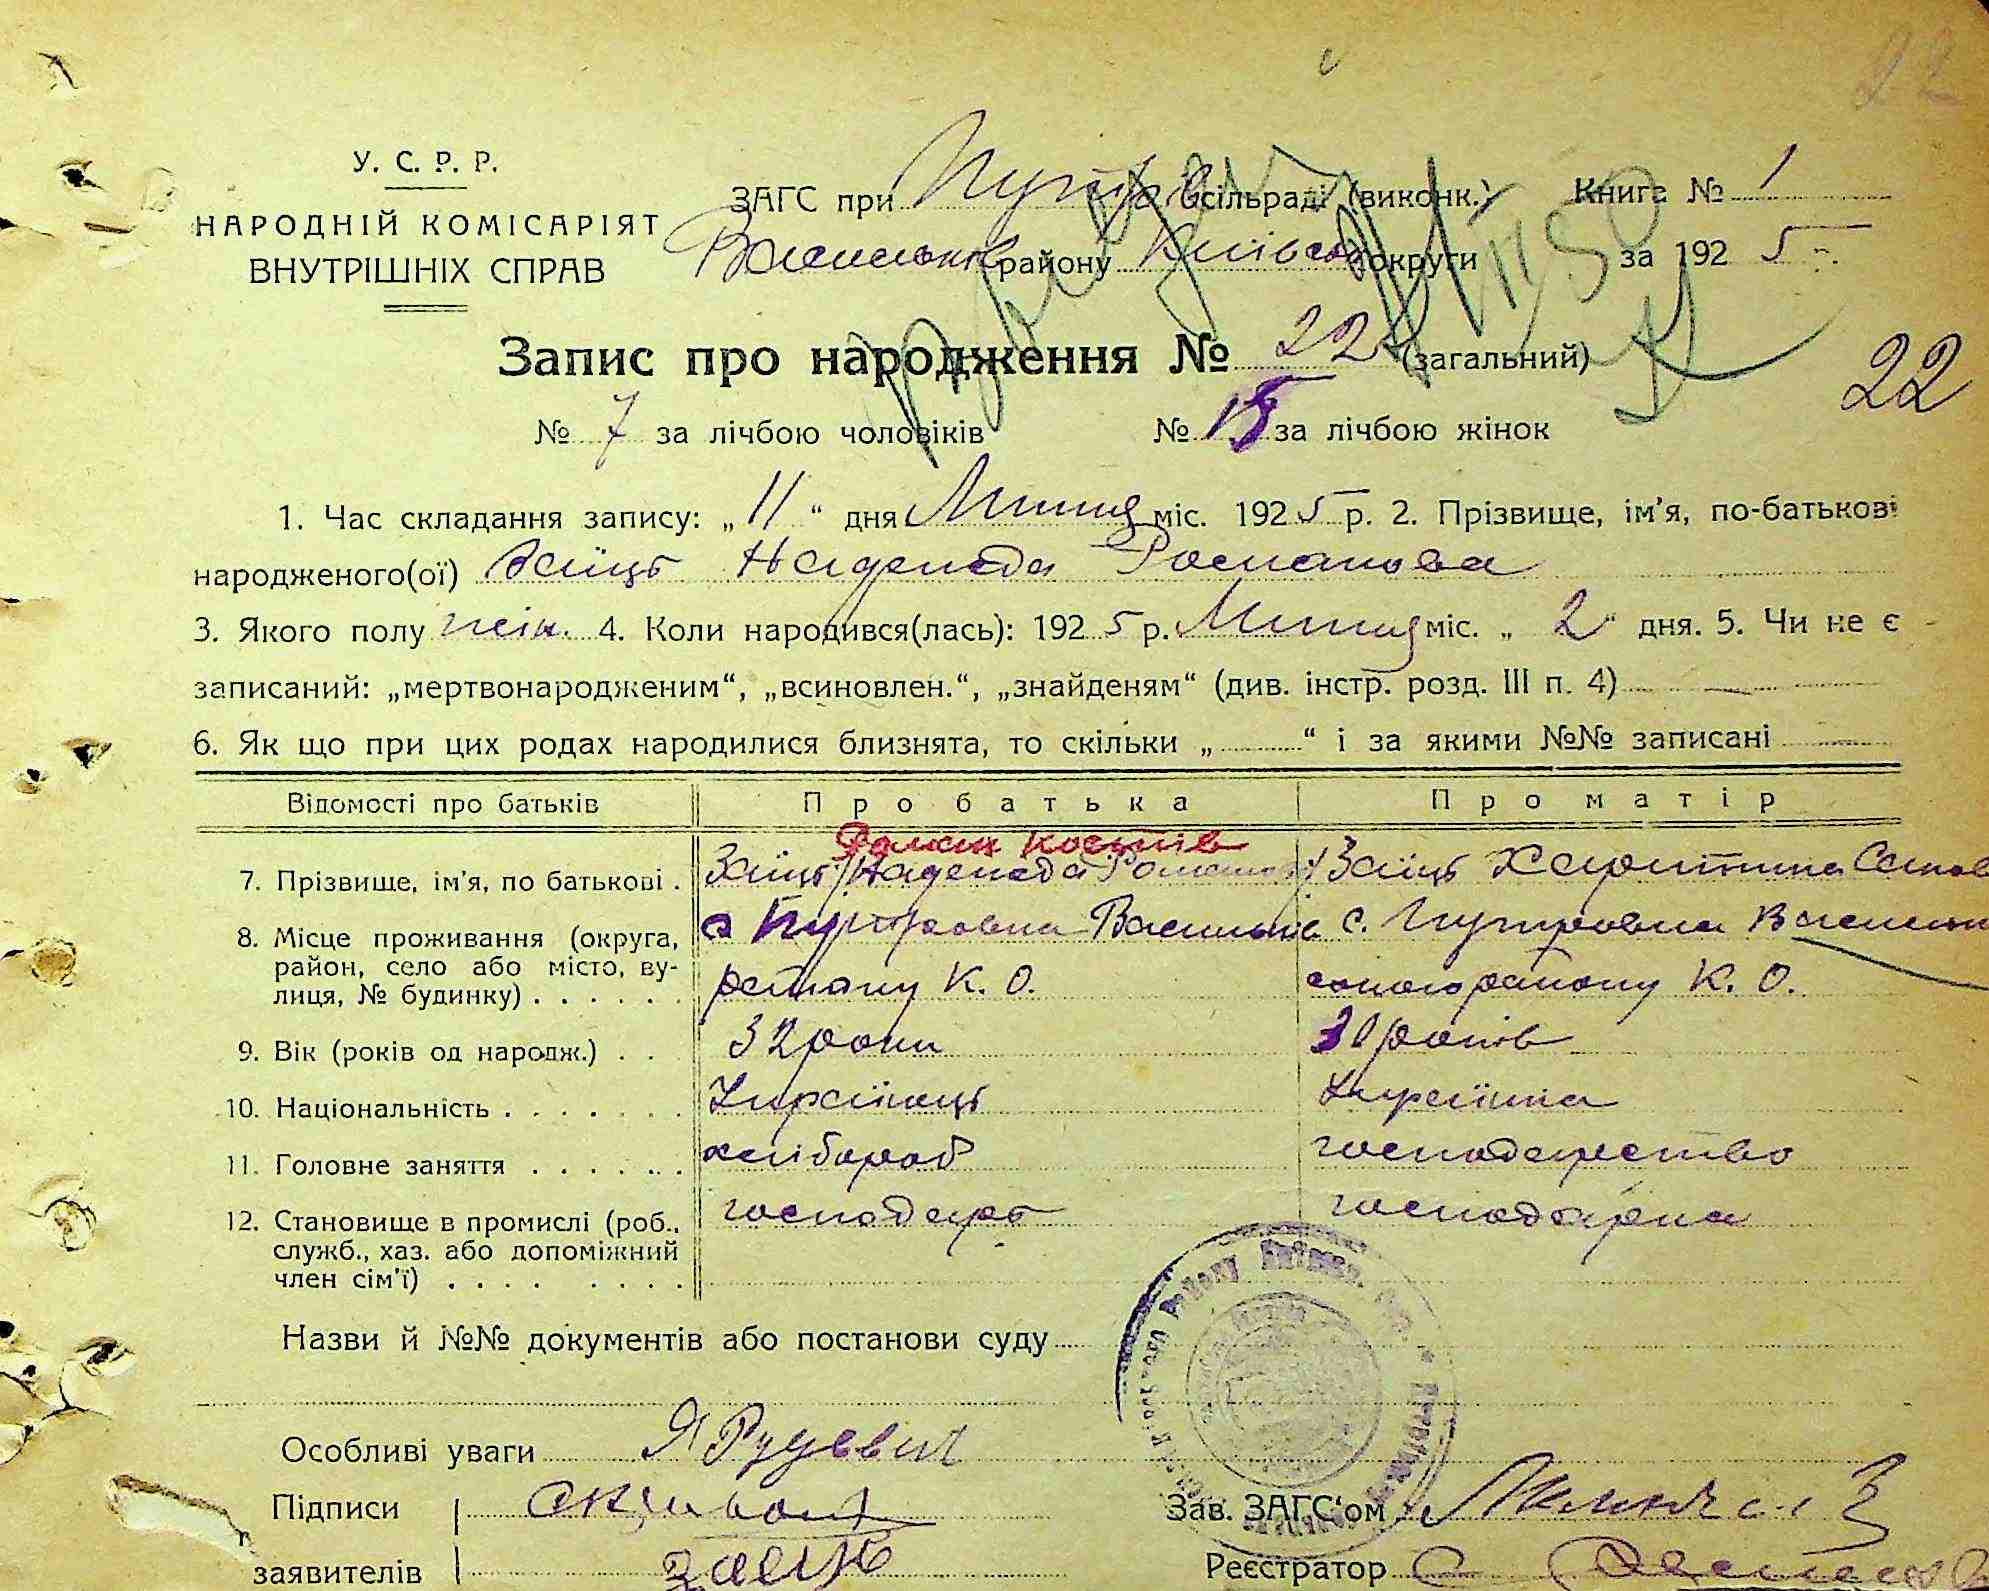 22
У. С. Р. Р.
НАРОДНІЙ КОМІСАРІЯТ
ВНУТРІШНІХ СПРАВ
ЗАГС при Путрів сільраді (виконк.) Книга № 1
Васильків району Київсь округи за 1925 г.
Запис про народження № 22 (загальний)
22
№ 7 за лічбою чоловіків № 15 за лічбою жінок
1. Час складання запису: „11“ дня міс. 1925 р. 2. Прізвище, ім'я, по-батькові
народженого(ої) Заїць Надежда Романова
3. Якого полу жін. 4. Коли народився(лась): 1925 р. міс. „2“ дня. 5. Чи не є
записаний: „мертвонародженим“, „всиновлен.“, „знайденям“ (див. інстр. розд. III п. 4)
6. Як що при цих родах народилися близнята, то скільки „ “ і за якими №№ записані
Відомості про батьків Про батька Про матір
Роман Костів
7. Прізвище, ім'я, по батькові . Заїць (Надежда Романов) Заїць Харитина
8. Місце проживання (округа, район, село або місто, вулиця, № будинку) . . . . . . с Путровка Васильків с. Путровка Васильків
району К. О. району К. О.
9. Вік (років од народж.) . . 32 роки 30 років
10. Національність . . . . . . . Українець Українка
11. Головне заняття . . . . . . . хлібороб господарство
12. Становище в промислі (роб., служб., хаз. або допоміжний член сім'ї) . . . . . . . . . господар господарка
Назви й №№ документів або постанови суду
Особливі уваги Я Рудевич
Підписи
Зав. ЗАГС'ом
заявителів заяць
Реєстратор